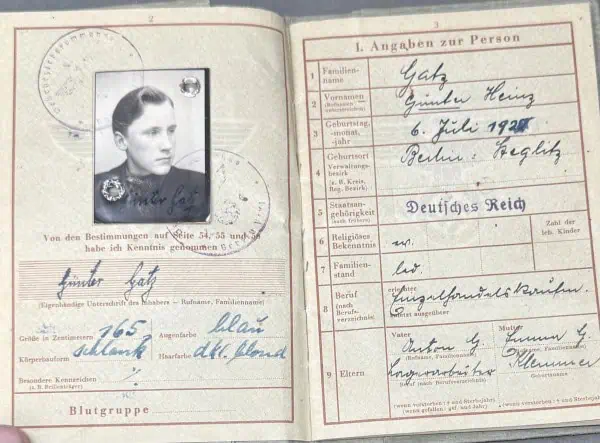 2
Günter Gatz
Von den Bestimmungen auf Seite 54, 55 und 56
habe ich Kenntnis genommen
Günter Gatz
(Eigenhändige Unterschrift des Inhabers — Rufname, Familienname)
Größe in Zentimetern 165 Augenfarbe blau
Körperbauform schlank Haarfarbe dkl. blond
Besondere Kennzeichen
(z. B. Brillenträger)
Blutgruppe
3
I. Angaben zur Person
1 Familien-
name
Gatz
2 Vornamen
(Rufnamen
unterstreichen)
Günter Heinz
3 Geburtstag,
-monat,
-jahr
6. Juli
4 Geburtsort
Verwaltungs-
bezirk
(z. B. Kreis,
Reg. Bezirk)
Berlin-Steglitz
5 Staatsan-
gehörigkeit
(auch frühere)
Deutsches Reich
6 Religiöses
Bekenntnis
ev.
Zahl der
leb. Kinder
7 Familien-
stand
led.
8 Beruf
(nach
Berufs-
verzeichnis)
erlernter
Einzelhandelskaufm.
zuletzt ausgeübter
9 Eltern
Vater
Anton G.
(Rufname, Familienname)
Lagerarbeiter
Beruf (nach Berufsverzeichnis)
(wenn verstorben: † und Sterbejahr)
(wenn gefallen: gef. und Jahr)
Mutter
Emma G
(Rufname, Familienname)
Klemmer
Geburtsname
(wenn verstorben: † und Sterbejahr)